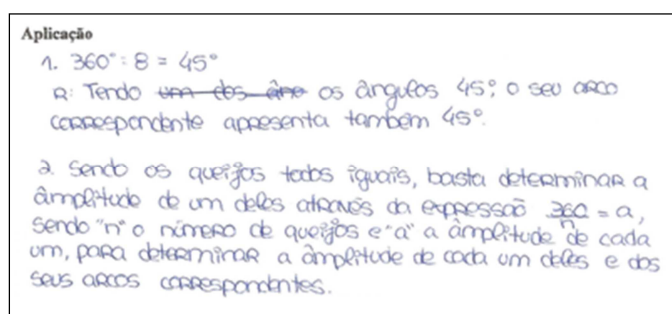 Aplicação
1. 360° : 8 = 45°
R: Tendo um dos âng os ângulos 45°, o seu arco
correspondente apresenta também 45°.
2. Sendo os queijos todos iguais, basta determinar a
âmplitude de um deles através da expressão 360/n = a,
sendo "n" o número de queijos e "a" a âmplitude de cada
um, para determinar a âmplitude de cada um deles e dos
seus arcos correspondentes.